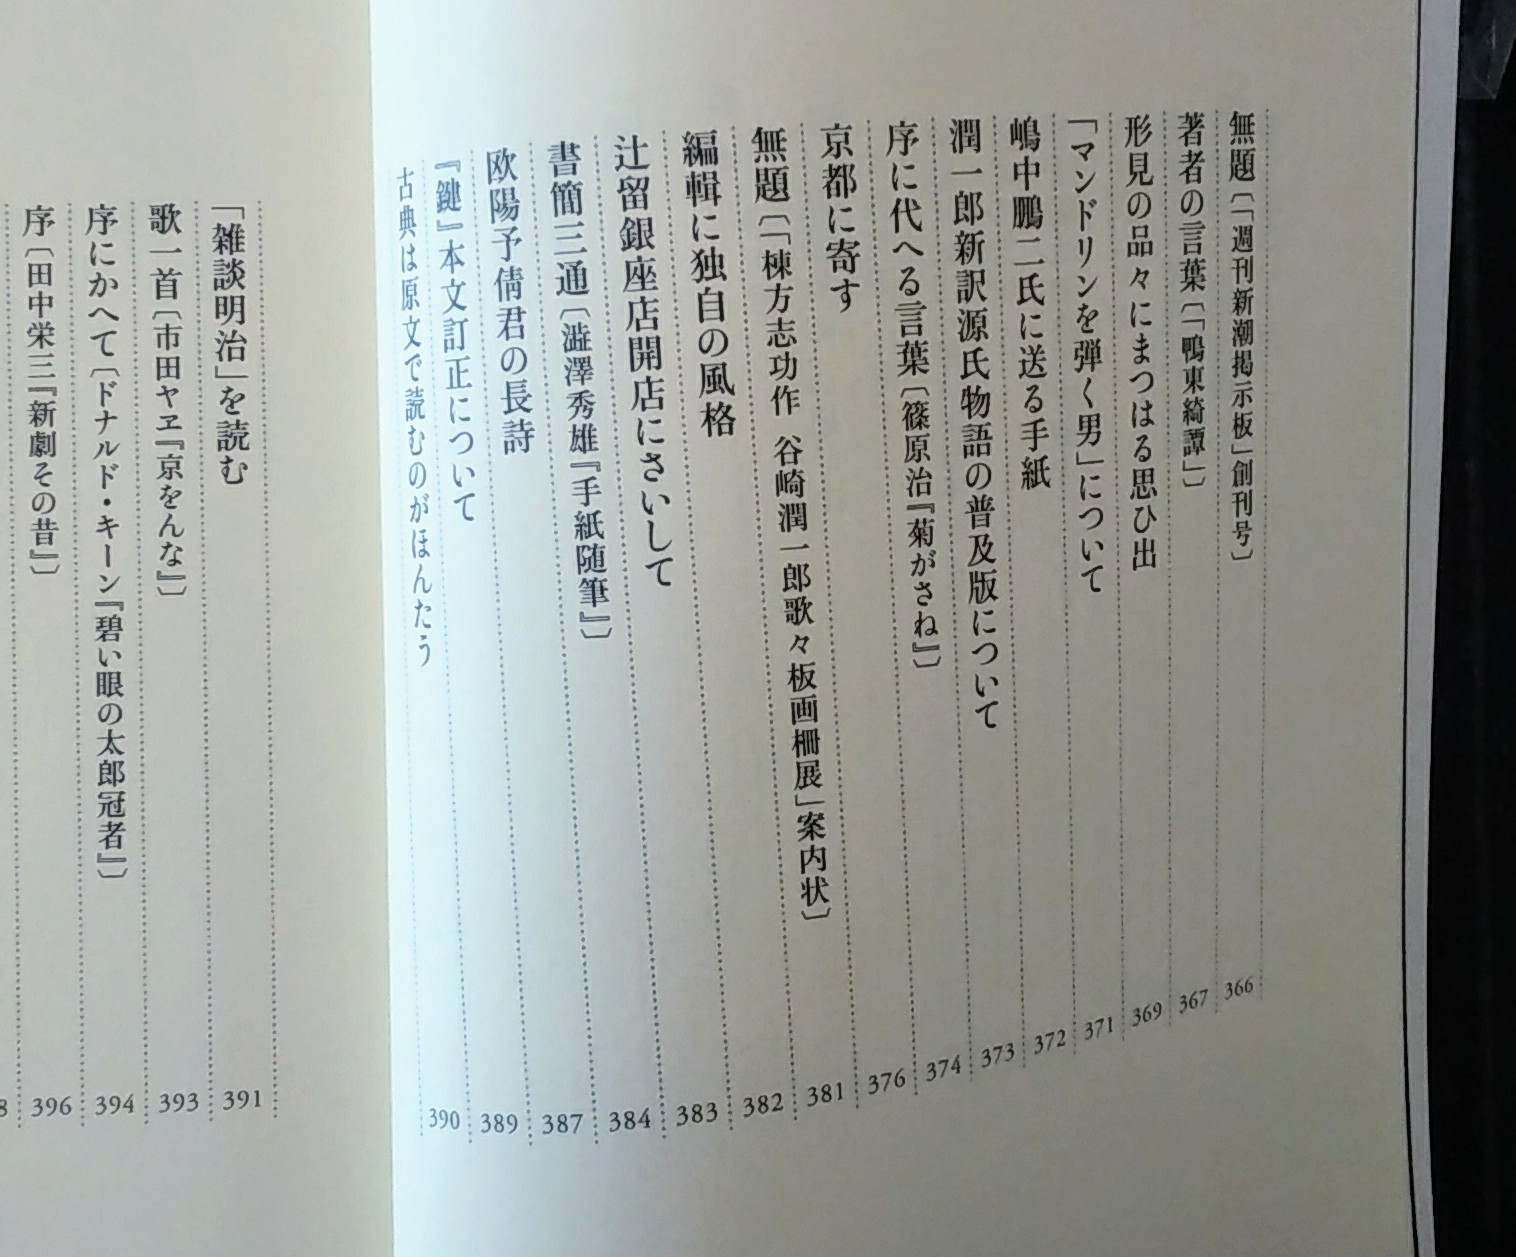 無題〔「週刊新潮掲示板」創刊号〕 366
著者の言葉〔「鴨東綺譚」〕 367
形見の品々にまつはる思ひ出 369
「マンドリンを弾く男」について 371
嶋中鵬二氏に送る手紙 372
潤一郎新訳源氏物語の普及版について 373
序に代へる言葉〔篠原治『菊がさね』〕 374
京都に寄す 376
無題〔「棟方志功作 谷崎潤一郎歌々板画柵展」案内状〕 381
編輯に独自の風格 382
辻留銀座店開店にさいして 383
書簡三通〔澁澤秀雄『手紙随筆』〕 384
欧陽予倩君の長詩 387
『鍵』本文訂正について 389
古典は原文で読むのがほんたう 390
「雑談明治」を読む 391
歌一首〔市田ヤヱ『京をんな』〕 393
序にかへて〔ドナルド・キーン『碧い眼の太郎冠者』〕 394
序〔田中栄三『新劇その昔』〕 396